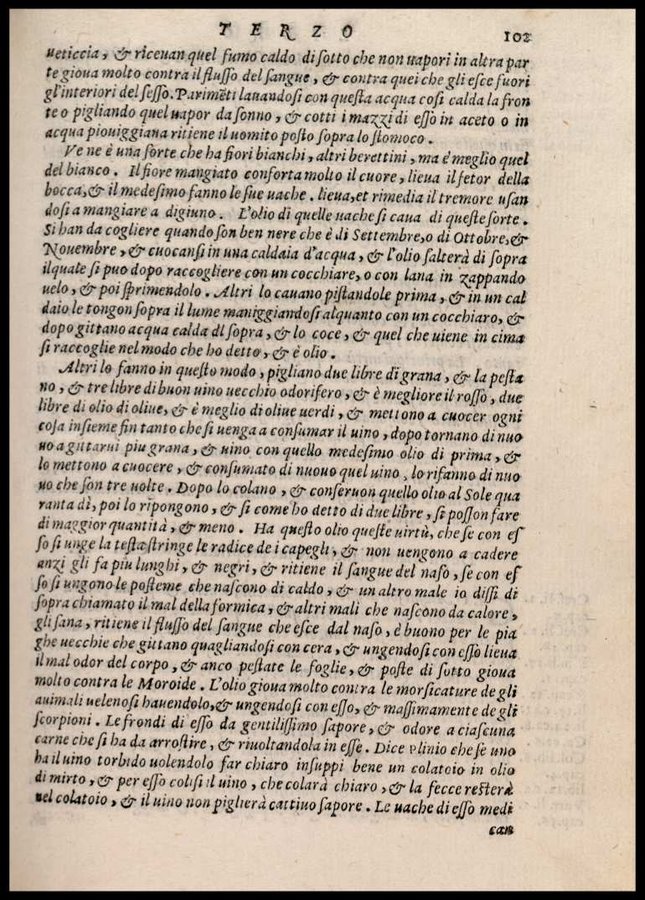 TERZO 102
ueticcia, & riceuan quel fumo caldo di sotto che non uapori in altra par
te gioua molto contra il flusso del sangue, & contra quei che gli esce fuori
gl'interiori del sesso. Parimēti lauandosi con questa acqua cosi calda la fron
te o pigliando quel uapor da sonno, & cotti i mazzi di esso in aceto o in
acqua piouiggiana ritiene il uomito posto sopra lo stomoco.
Ve ne è una sorte che ha fiori bianchi, altri berettini, ma è meglio quel
del bianco. Il fiore mangiato conforta molto il cuore, lieua il fetor della
bocca, & il medesimo fanno le sue uache. lieua, et rimedia il tremore usan
dosi a mangiare a digiuno. L'olio di quelle uache si caua di queste sorte.
Si han da cogliere quando son ben nere che è di Settembre, o di Ottobre, &
Nouembre, & cuocansi in una caldaia d'acqua, & l'olio salterà di sopra
il quale si puo dopo raccogliere con un cocchiare, o con lana in zappando
uelo, & poi sprimendolo. Altri lo cauano pistandole prima, & in un cal
daio le tongon sopra il lume maniggiandosi alquanto con un cocchiaro, &
dopo gittano acqua calda di sopra, & lo coce, & quel che uiene in cima
si raccoglie nel modo che ho detto, & è olio.
Altri lo fanno in questo modo, pigliano due libre di grana, & la pesta
no, & tre libre di buon uino uecchio odorifero, & è megliore il rosso, due
libre di olio di oliue, & è meglio di oliue uerdi, & mettono a cuocer ogni
cosa insieme fin tanto che si uenga a consumar il uino, dopo tornano di nuo
uo a gittarui piu grana, & uino con quello medesimo olio di prima, &
lo mettono a cuocere, & consumato di nuouo quel uino, lo rifanno di nuo
uo che son tre uolte. Dopo lo colano, & conseruon quello olio al Sole qua
ranta dì, poi lo ripongono, & si come ho detto di due libre, si posson fare
di maggior quantità, & meno. Ha questo olio queste uirtù, che se con es
so si unge la testa stringe le radice de i capegli, & non uengono a cadere
anzi gli fa piu lunghi, & negri, & ritiene il sangue del naso, se con es
so si ungono le posteme che nascono di caldo, & un altro male io dissi di
sopra chiamato il mal della formica, & altri mali che nascono da calore,
gli sana, ritiene il flusso del sangue che esce dal naso, è buono per le pia
ghe uecchie che gittano quagliandosi con cera, & ungendosi con esso lieua
il mal odor del corpo, & anco pestate le foglie, & poste di sotto gioua
molto contra le Moroide. L'olio gioua molto contra le morsicature de gli
animali uelenosi hauendolo, & ungendosi con esso, & massimamente de gli
scorpioni. Le frondi di esso da gentilissimo sapore, & odore a ciascuna
carne che si ha da arrostire, & riuoltandola in esse. Dice Plinio che se uno
ha il uino torbido uolendolo far chiaro insuppi bene un colatoio in olio
di mirto, & per esso colisi il uino, che colarà chiaro, & la fecce resterà
nel colatoio, & il uino non piglierà cattiuo sapore. Le uache di esso medi
can